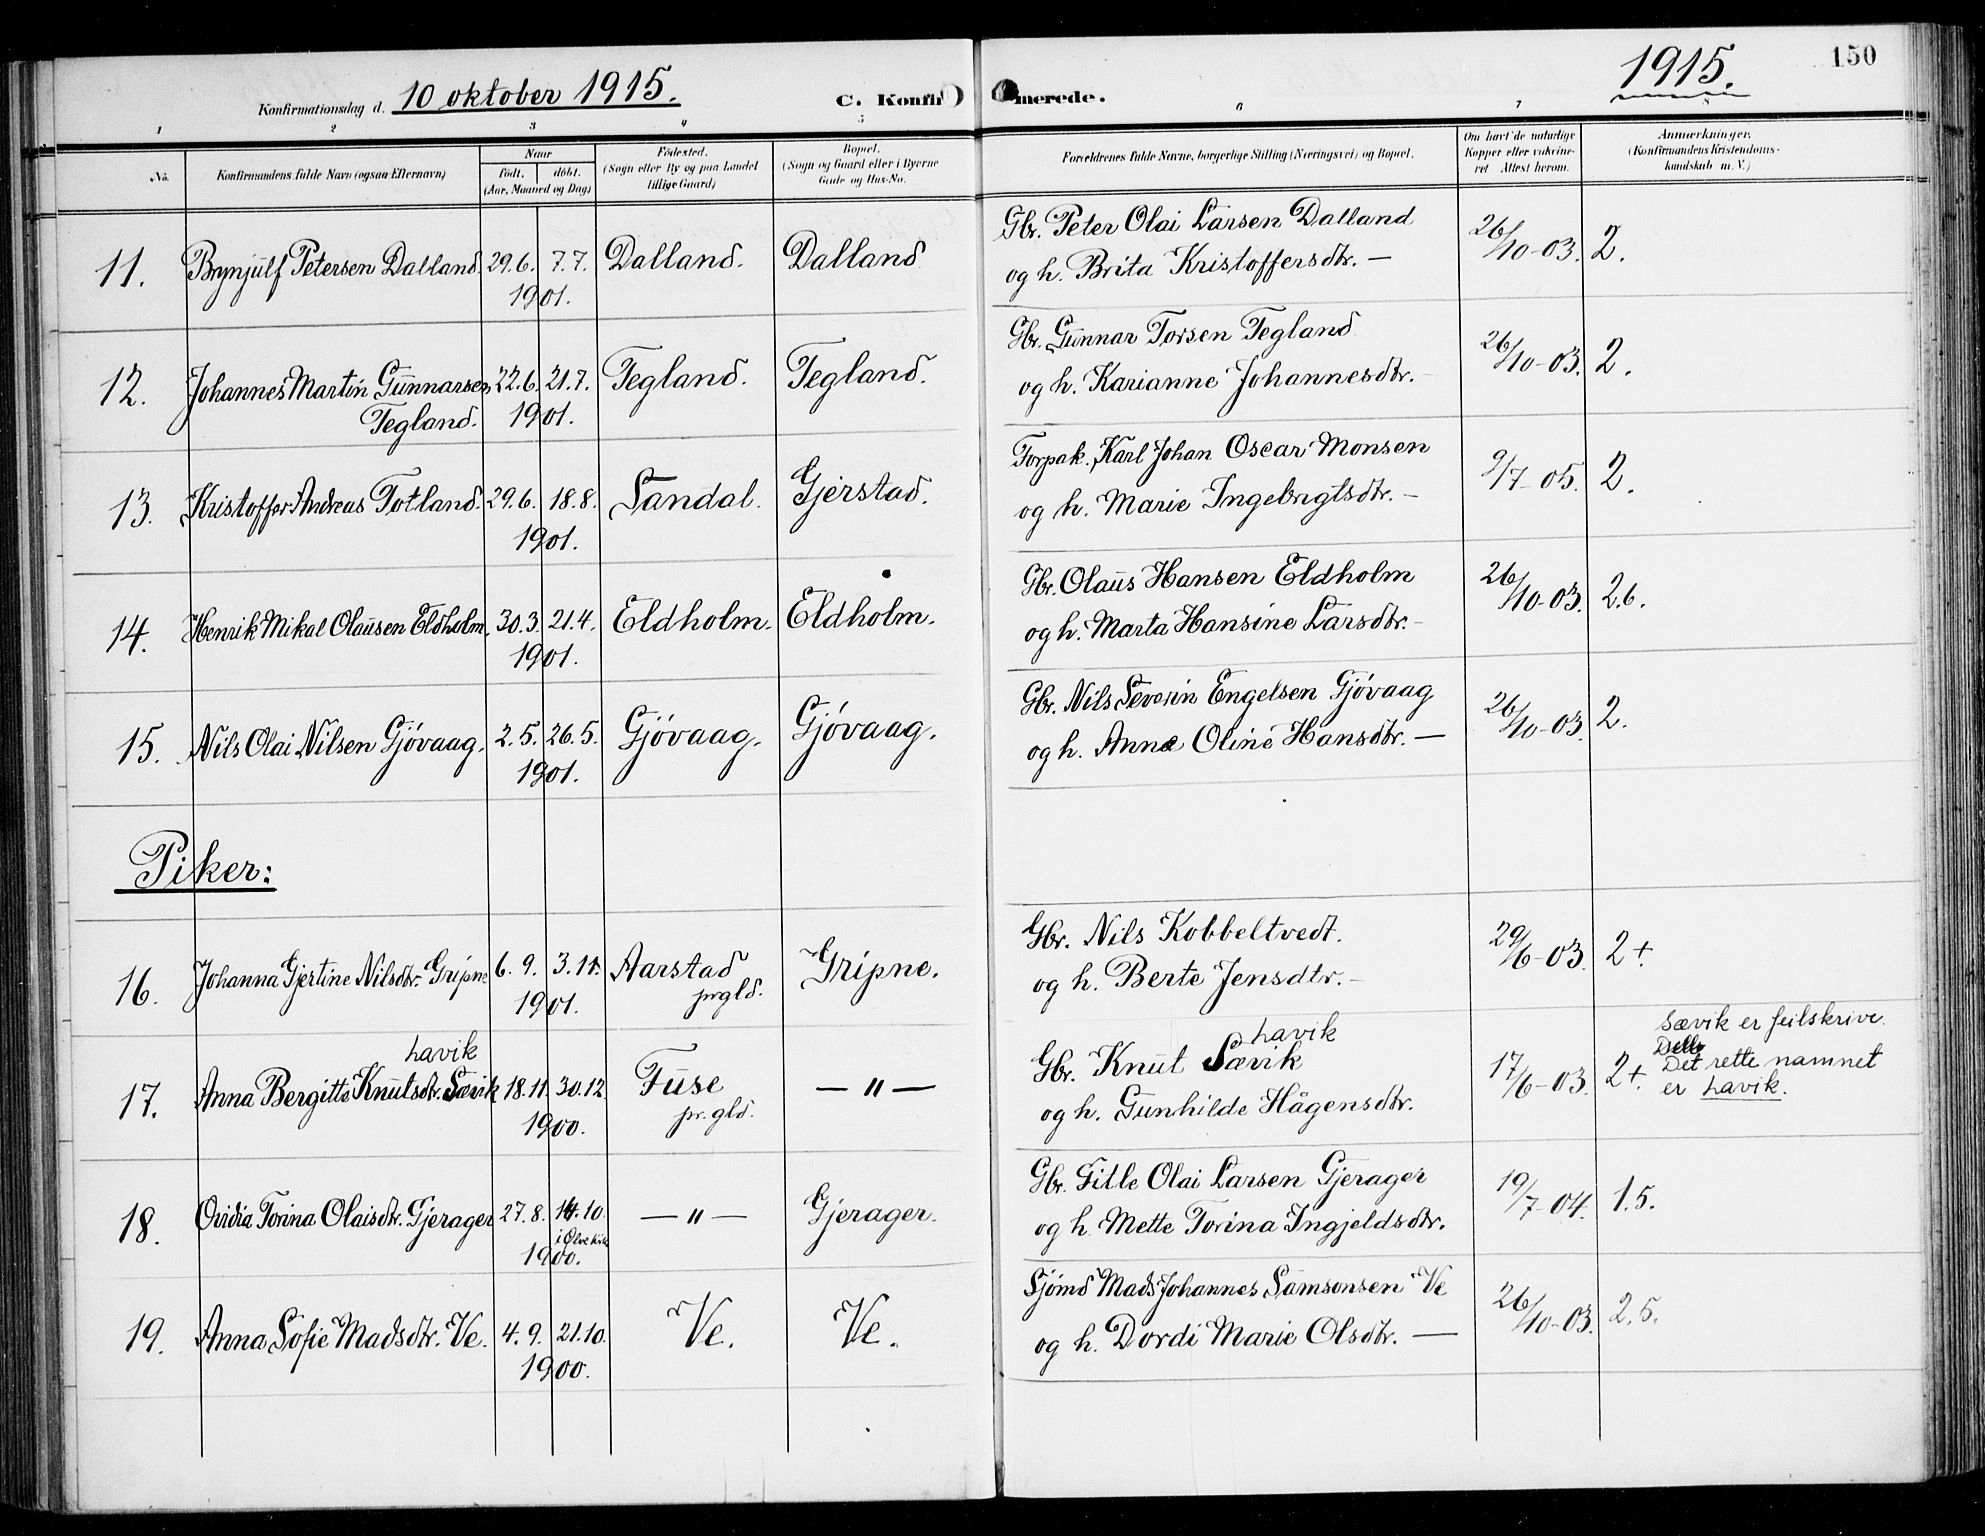 Konfirmationsdag d. 10 oktober 1915. C. Konfir merede. 1915. 150
1 2 3 4 5 6 7 8
No. Konfirmandens fulde Navn (ogsaa Efternavn) Naar født. døbt. (Aar, Maaned og Dag) Fødested. (Sogn eller By og paa Landet tillige Gaard) Bopæl. (Sogn og Gaard eller i Byerne Gade og Hus-No. Forældrenes fulde Navne, borgerlige Stilling (Næringsvei) og Bopæl. Om havt de naturlige Kopper eller vakcineret Attest herom. Anmerkninger. (Konfirmandens Kristendomskundskab m. V.)
11. Brynjulf Petersen Dalland 29.6. 7.7. 1901. Dalland. Dalland Gbr. Peter Olai Larsen Dalland
og h. Brita Kristoffersdtr. — 26/10-03. 2.
12. Johannes Martin Gunnarsen 22.6. 21.7. Tegland. Tegland. Gbr. Gunnar Torsen Tegland
Tegland. 1901. og h. Karianne Johannesdtr. - 26/10-03. 2.
13. Kristoffer Andreas Totland. 29.6. 18.8. 1901. Sandal. Gjerstad. Forpak. Karl Johan Oscar Monsen
og h. Marie Ingebrigtsdtr. — 9/7-05. 2.
14. Henrik Mikal Olausen Eldholm. 30.3. 21.4. 1901. Eldholm. Eldholm. Gbr. Olaus Hansen Eldholm
og h. Marta Hansine Larsdtr. - 26/10-03. 2.6.
15. Nils Olai Nilsen Gjövaag. 2.5. 26.5. 1901. Gjövaag. Gjövaag. Gbr. Nils Severin Engelsen Gjövaag
og h. Anna Oline Hansdtr. — 26/10-03. 2.
Piker:
16. Johanna Gjertine Nilsdtr. Gripne 6.9. 3.11. 1901. Aarstad prgld. Gripne. Gbr. Nils Kobbeltvedt.
og h. Berte Jensdtr. - 29/6-03. 2+.
Lavik
17. Anna Bergitte Knutsdtr. Sævik 18.11. 30.12. 1900. Fuse pr.gld. — " — Gbr. Knut Sævik Lavik
og h. Gunhilde Hågensdtr. 17/6-03. 2+. Sævik er feilskrive.
Det rette namnet
er Lavik.
18. Ovidia Torina Olaisdtr. Gjerager 27.8. 14.10. i Ølve kirke 1900. — " — Gjerager. Gbr. Title Olai Larsen Gjerager
og h. Mette Torina Ingjeldsdtr. 19/7-04. 1.5.
19. Anna Sofie Madsdtr. Ve. 4.9. 21.10. 1900. Ve. Ve. Sjömd Mads Johannes Samsonsen Ve
og h. Dordi Marie Olsdtr. — 26/10-03. 2.5.